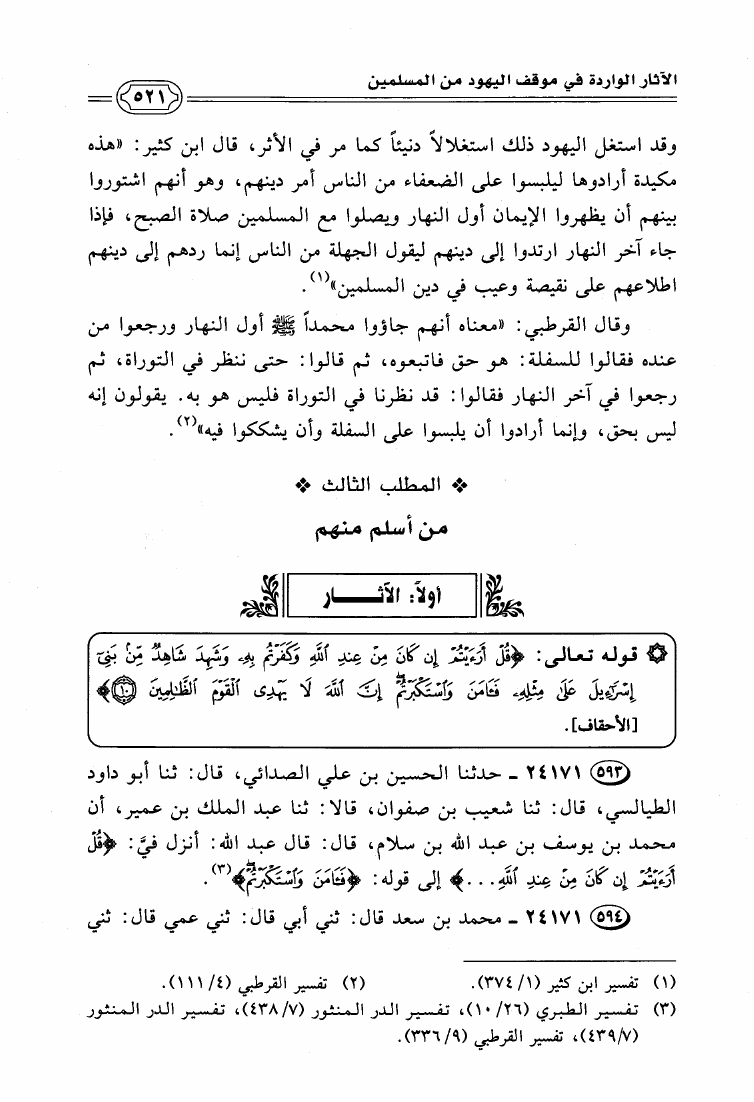 الآثار الواردة في موقف اليهود من المسلمين
٥٢١
وقد استغل اليهود ذلك استغلالاً دنيئاً كما مر في الأثر، قال ابن كثير: «هذه
مكيدة أرادوها ليلبسوا على الضعفاء من الناس أمر دينهم، وهو أنهم اشتوروا
بينهم أن يظهروا الإيمان أول النهار ويصلوا مع المسلمين صلاة الصبح، فإذا
جاء آخر النهار ارتدوا إلى دينهم ليقول الجهلة من الناس إنما ردهم إلى دينهم
اطلاعهم على نقيصة وعيب في دين المسلمين»(١).
وقال القرطبي: «معناه أنهم جاؤوا محمداً ﷺ أول النهار ورجعوا من
عنده فقالوا للسفلة: هو حق فاتبعوه، ثم قالوا: حتى ننظر في التوراة، ثم
رجعوا في آخر النهار فقالوا: قد نظرنا في التوراة فليس هو به. يقولون إنه
ليس بحق، وإنما أرادوا أن يلبسوا على السفلة وأن يشككوا فيه»(٢).
❖ المطلب الثالث ❖
من أسلم منهم
أولاً: الآثـــار
۞ قوله تعالى: ﴿قُلْ أَرَءَيْتُمْ إِن كَانَ مِنْ عِندِ اللَّهِ وَكَفَرْتُم بِهِۦ وَشَهِدَ شَاهِدٌ مِّنۢ بَنِىٓ
إِسْرَٰٓءِيلَ عَلَىٰ مِثْلِهِۦ فَـَٔامَنَ وَٱسْتَكْبَرْتُمْ ۖ إِنَّ ٱللَّهَ لَا يَهْدِى ٱلْقَوْمَ ٱلظَّـٰلِمِينَ ١٠﴾
[الأحقاف].
٥٩٣ ٢٤١٧١ ـ حدثنا الحسين بن علي الصدائي، قال: ثنا أبو داود
الطيالسي، قال: ثنا شعيب بن صفوان، قالا: ثنا عبد الملك بن عمير، أن
محمد بن يوسف بن عبد الله بن سلام، قال: قال عبد الله: أنزل فيَّ: ﴿قُلْ
أَرَءَيْتُمْ إِن كَانَ مِنْ عِندِ اللَّهِ...﴾ إلى قوله: ﴿فَـَٔامَنَ وَٱسْتَكْبَرْتُمْ ۖ﴾(٣).
٥٩٤ ٢٤١٧١ ـ محمد بن سعد قال: ثني أبي قال: ثني عمي قال: ثني
(١) تفسير ابن كثير (١/ ٣٧٤). (٢) تفسير القرطبي (٤/ ١١١).
(٣) تفسير الطبري (٢٦/ ١٠)، تفسير الدر المنثور (٧/ ٤٣٨)، تفسير الدر المنثور
(٧/ ٤٣٩)، تفسير القرطبي (٩/ ٣٣٦).